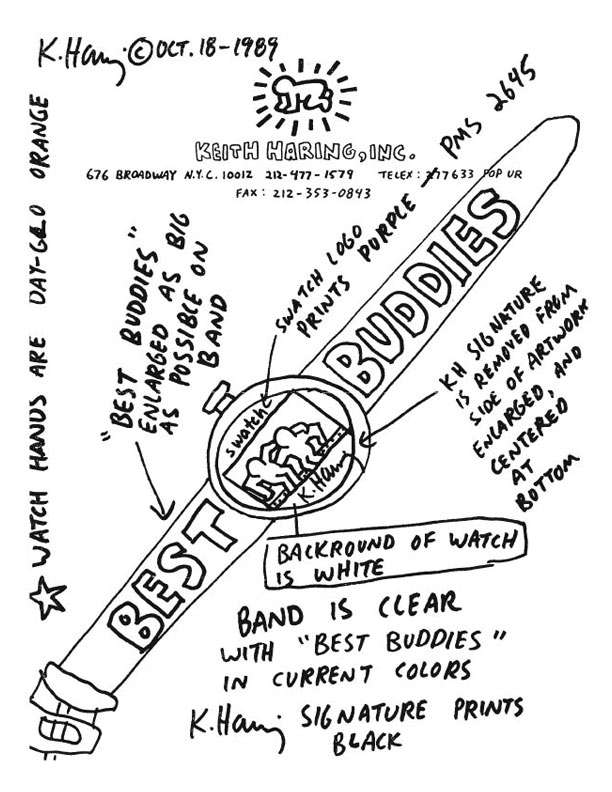 K.Haring © OCT. 18-1989
KEITH HARING, INC.
676 BROADWAY N.Y.C. 10012 212-477-1579 TELEX: 277633 POP UR
FAX: 212-353-0843
☆ WATCH HANDS ARE DAY-GLO ORANGE
"BEST BUDDIES"
ENLARGED AS BIG
AS POSSIBLE ON
BAND
SWATCH LOGO
PRINTS PURPLE - PMS 2645
BUDDIES
KH SIGNATURE
IS REMOVED FROM
SIDE OF ARTWORK
ENLARGED, AND
CENTERED
AT
BOTTOM
swatch
K.Haring
BEST
BACKROUND OF WATCH
IS WHITE
BAND IS CLEAR
WITH "BEST BUDDIES"
IN CURRENT COLORS
K.Haring SIGNATURE PRINTS
BLACK